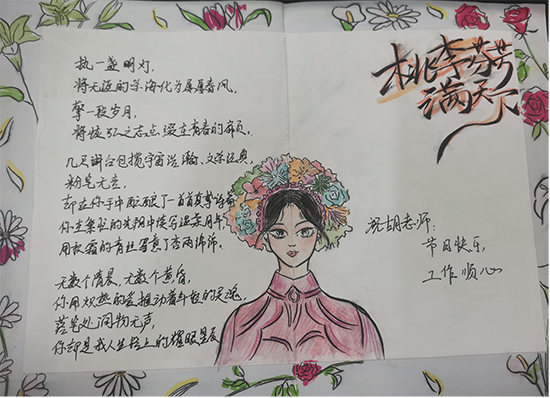 桃李芬芳
满天下
执一盏明灯,
将无边的学海化为屋屋春风,
擎一段岁月,
将恢弘之志点缀在青春的扉页。
几尺讲台包揽宇宙浩瀚、文学经典,
粉笔无言,
却在你手中酝酿了一首首真挚诗
你在繁忙的光阴中续写温柔月年,
用数霜的青丝写意了
无数个清晨,无数个黄昏,
你用炽热的爱推动着年轻的灵魂,
落笔处润物无声,
你却是我人生路上的耀眼星辰
祝胡老师:
节日快乐,
工作顺心